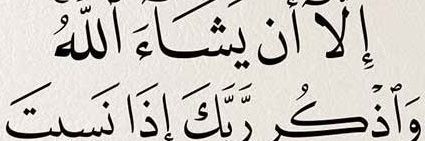 إِلَّآ أَن يَشَآءَ ٱللَّهُ
وَٱذْكُر رَّبَّكَ إِذَا نَسِيتَ